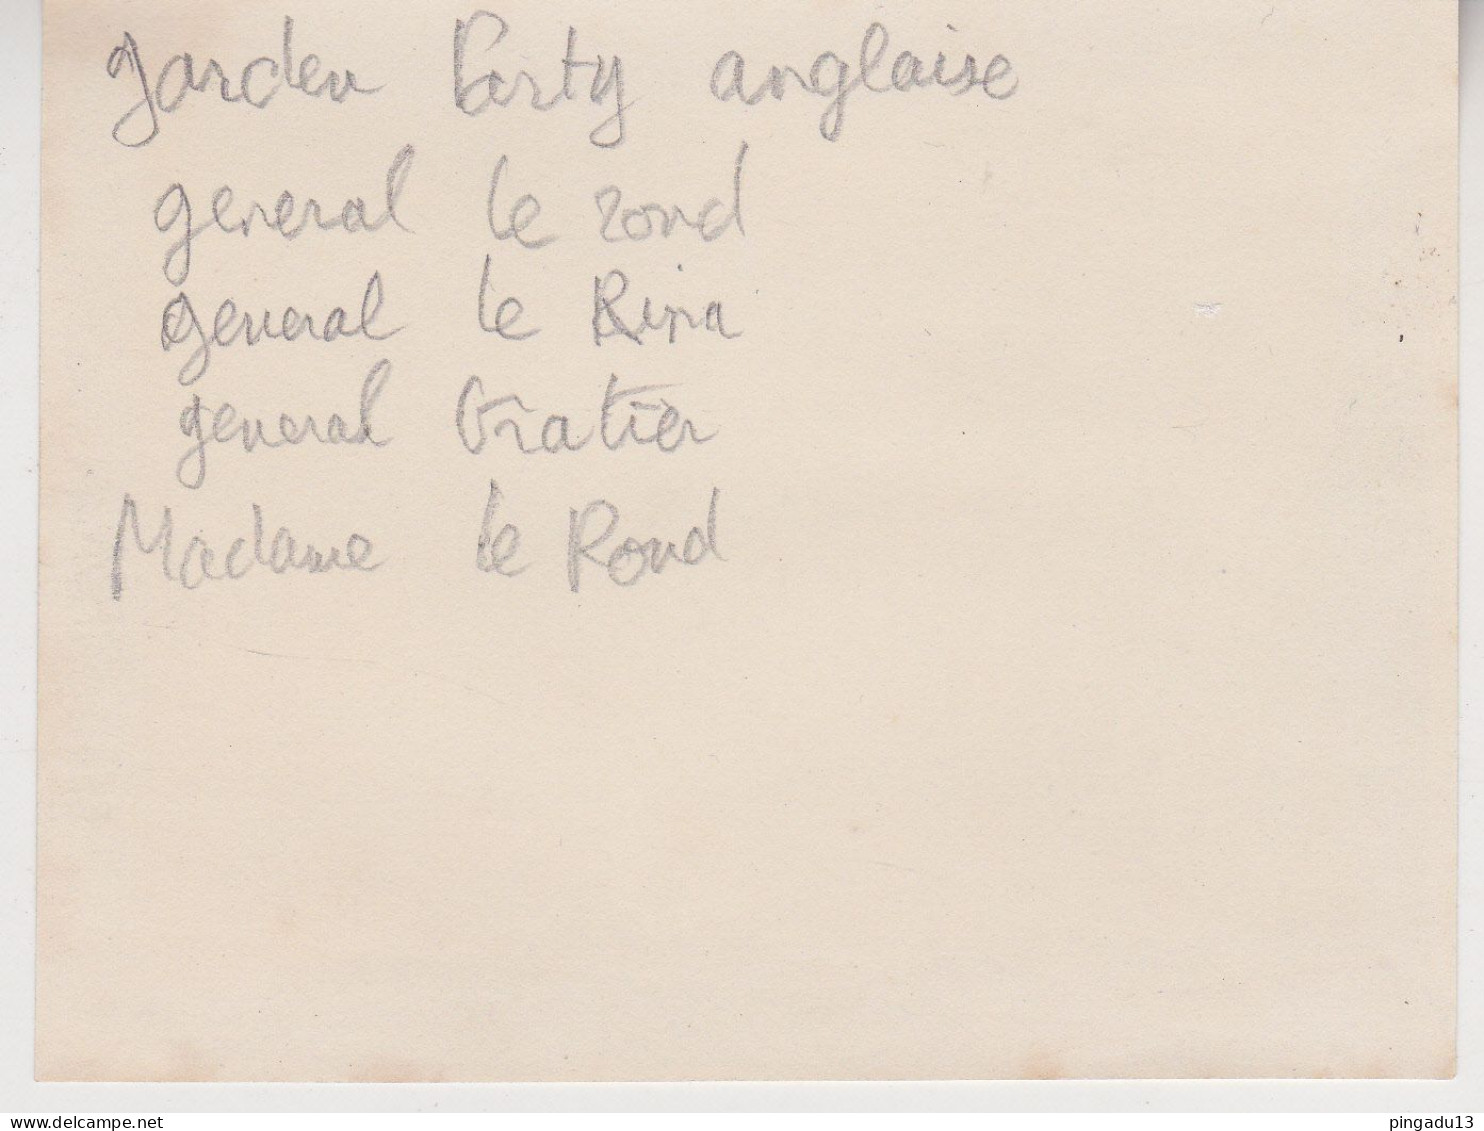 garden Party anglaise
general le rond
general le
general Gratier
Madame le Rond
www.delcampe.net
pingadu13